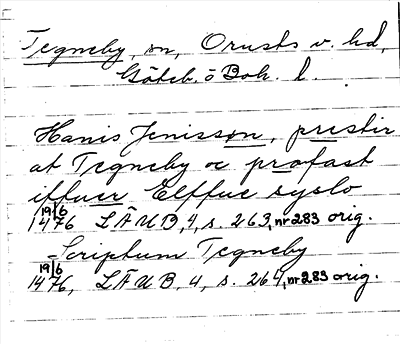 Tegneby, sn, Orusts v. hd,
Göteb. o Boh. l.
Hanis Jenisson, prestir
at Tegneby oc profast
iffuer Elffue syslo
19/6
1476 LÄUB, 4, s. 263, nr 283 orig.
- Scriptum Tegneby
19/6
1476, LÄUB, 4, s. 264, nr 283 orig.